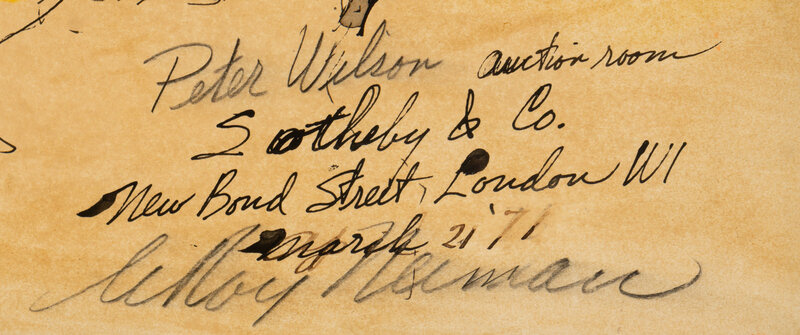 Peter Wilson auction room
Sotheby & Co.
New Bond Street, London W1
March 21 '71
LeRoy Neiman